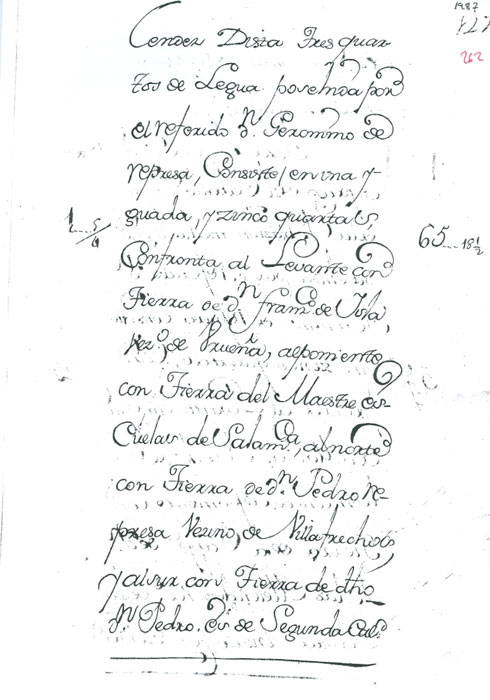 1987
127
262
Cender Dista Tres quar-
tos de Legua posehida por
el referido Dn. Geronimo de
represa, Consiste en una y-
guada, y zinco quartas,
1 5/6
65 18 1/2
Confronta al Levante con
Tierra de Dn. Franco. de Isla,
vezo. de Urueña, al poniente
con Tierra del Maestre es-
Cuela de Salamca., al norte
con Tierra de Dn. Pedro Re-
presa Vezino, de Villafrechos,
y al sur con Tierra de dho
Dn. Pedro. Es de Segunda Cali